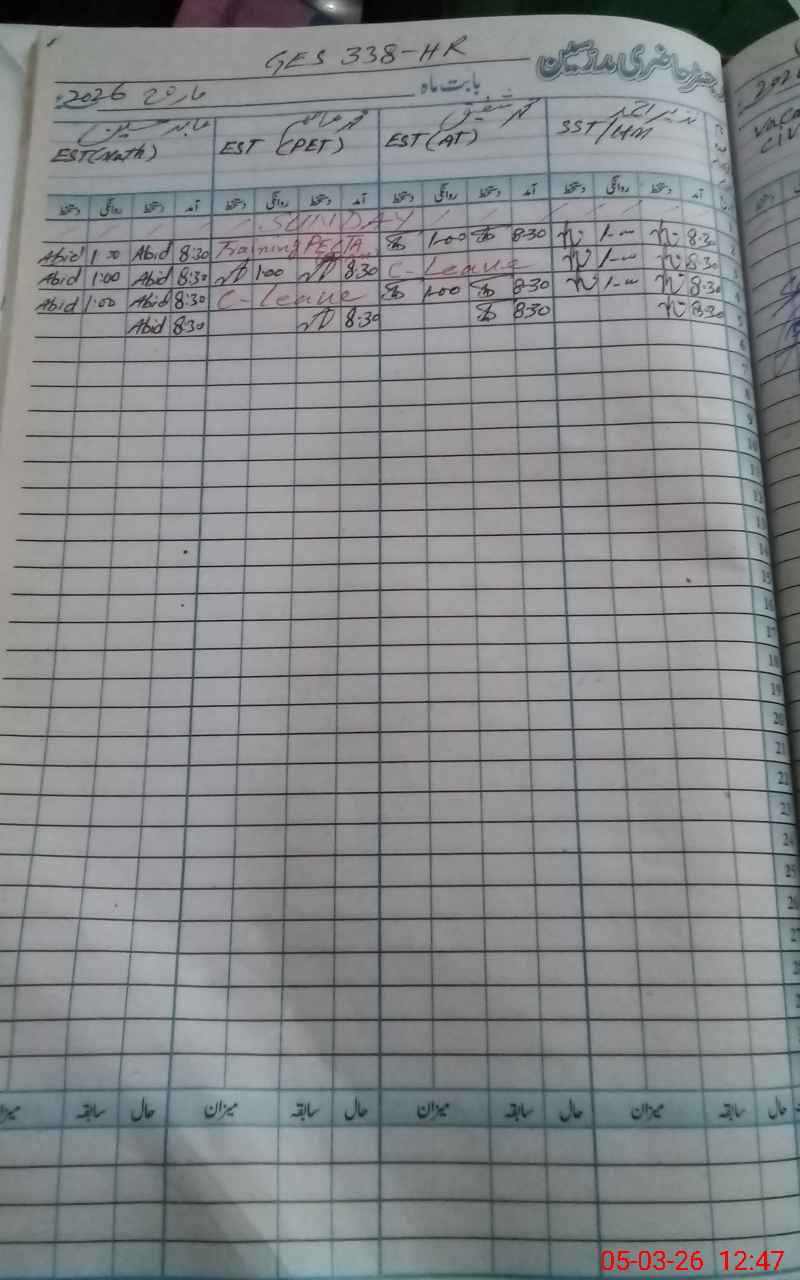 GES 338-HR
رجسٹر حاضری مدرسین
بابت ماہ مارچ 2026ء
SST/HM
محمد شفیق EST (AT)
EST (PET)
عابد حسین EST (Math)
آمد دستخط روانگی دستخط آمد دستخط روانگی دستخط آمد دستخط روانگی دستخط آمد دستخط روانگی دستخط
SUNDAY
Abid 1:00 Abid 8:30 Training PECTA 1-00 8:30 1- 8:30 2
Abid 1:00 Abid 8:30 1:00 8:30 C-Leave 1- 8:30 3
Abid 1:00 Abid 8:30 C-Leave 1-00 8:30 1- 8:30 4
Abid 8:30 8:30 8:30 8:30 5
6
7
8
9
10
11
12
13
14
15
16
17
18
19
20
21
22
23
24
25
26
27
حال سابقہ میزان حال سابقہ میزان حال سابقہ میزان حال سابقہ میزان
05-03-26 12:47